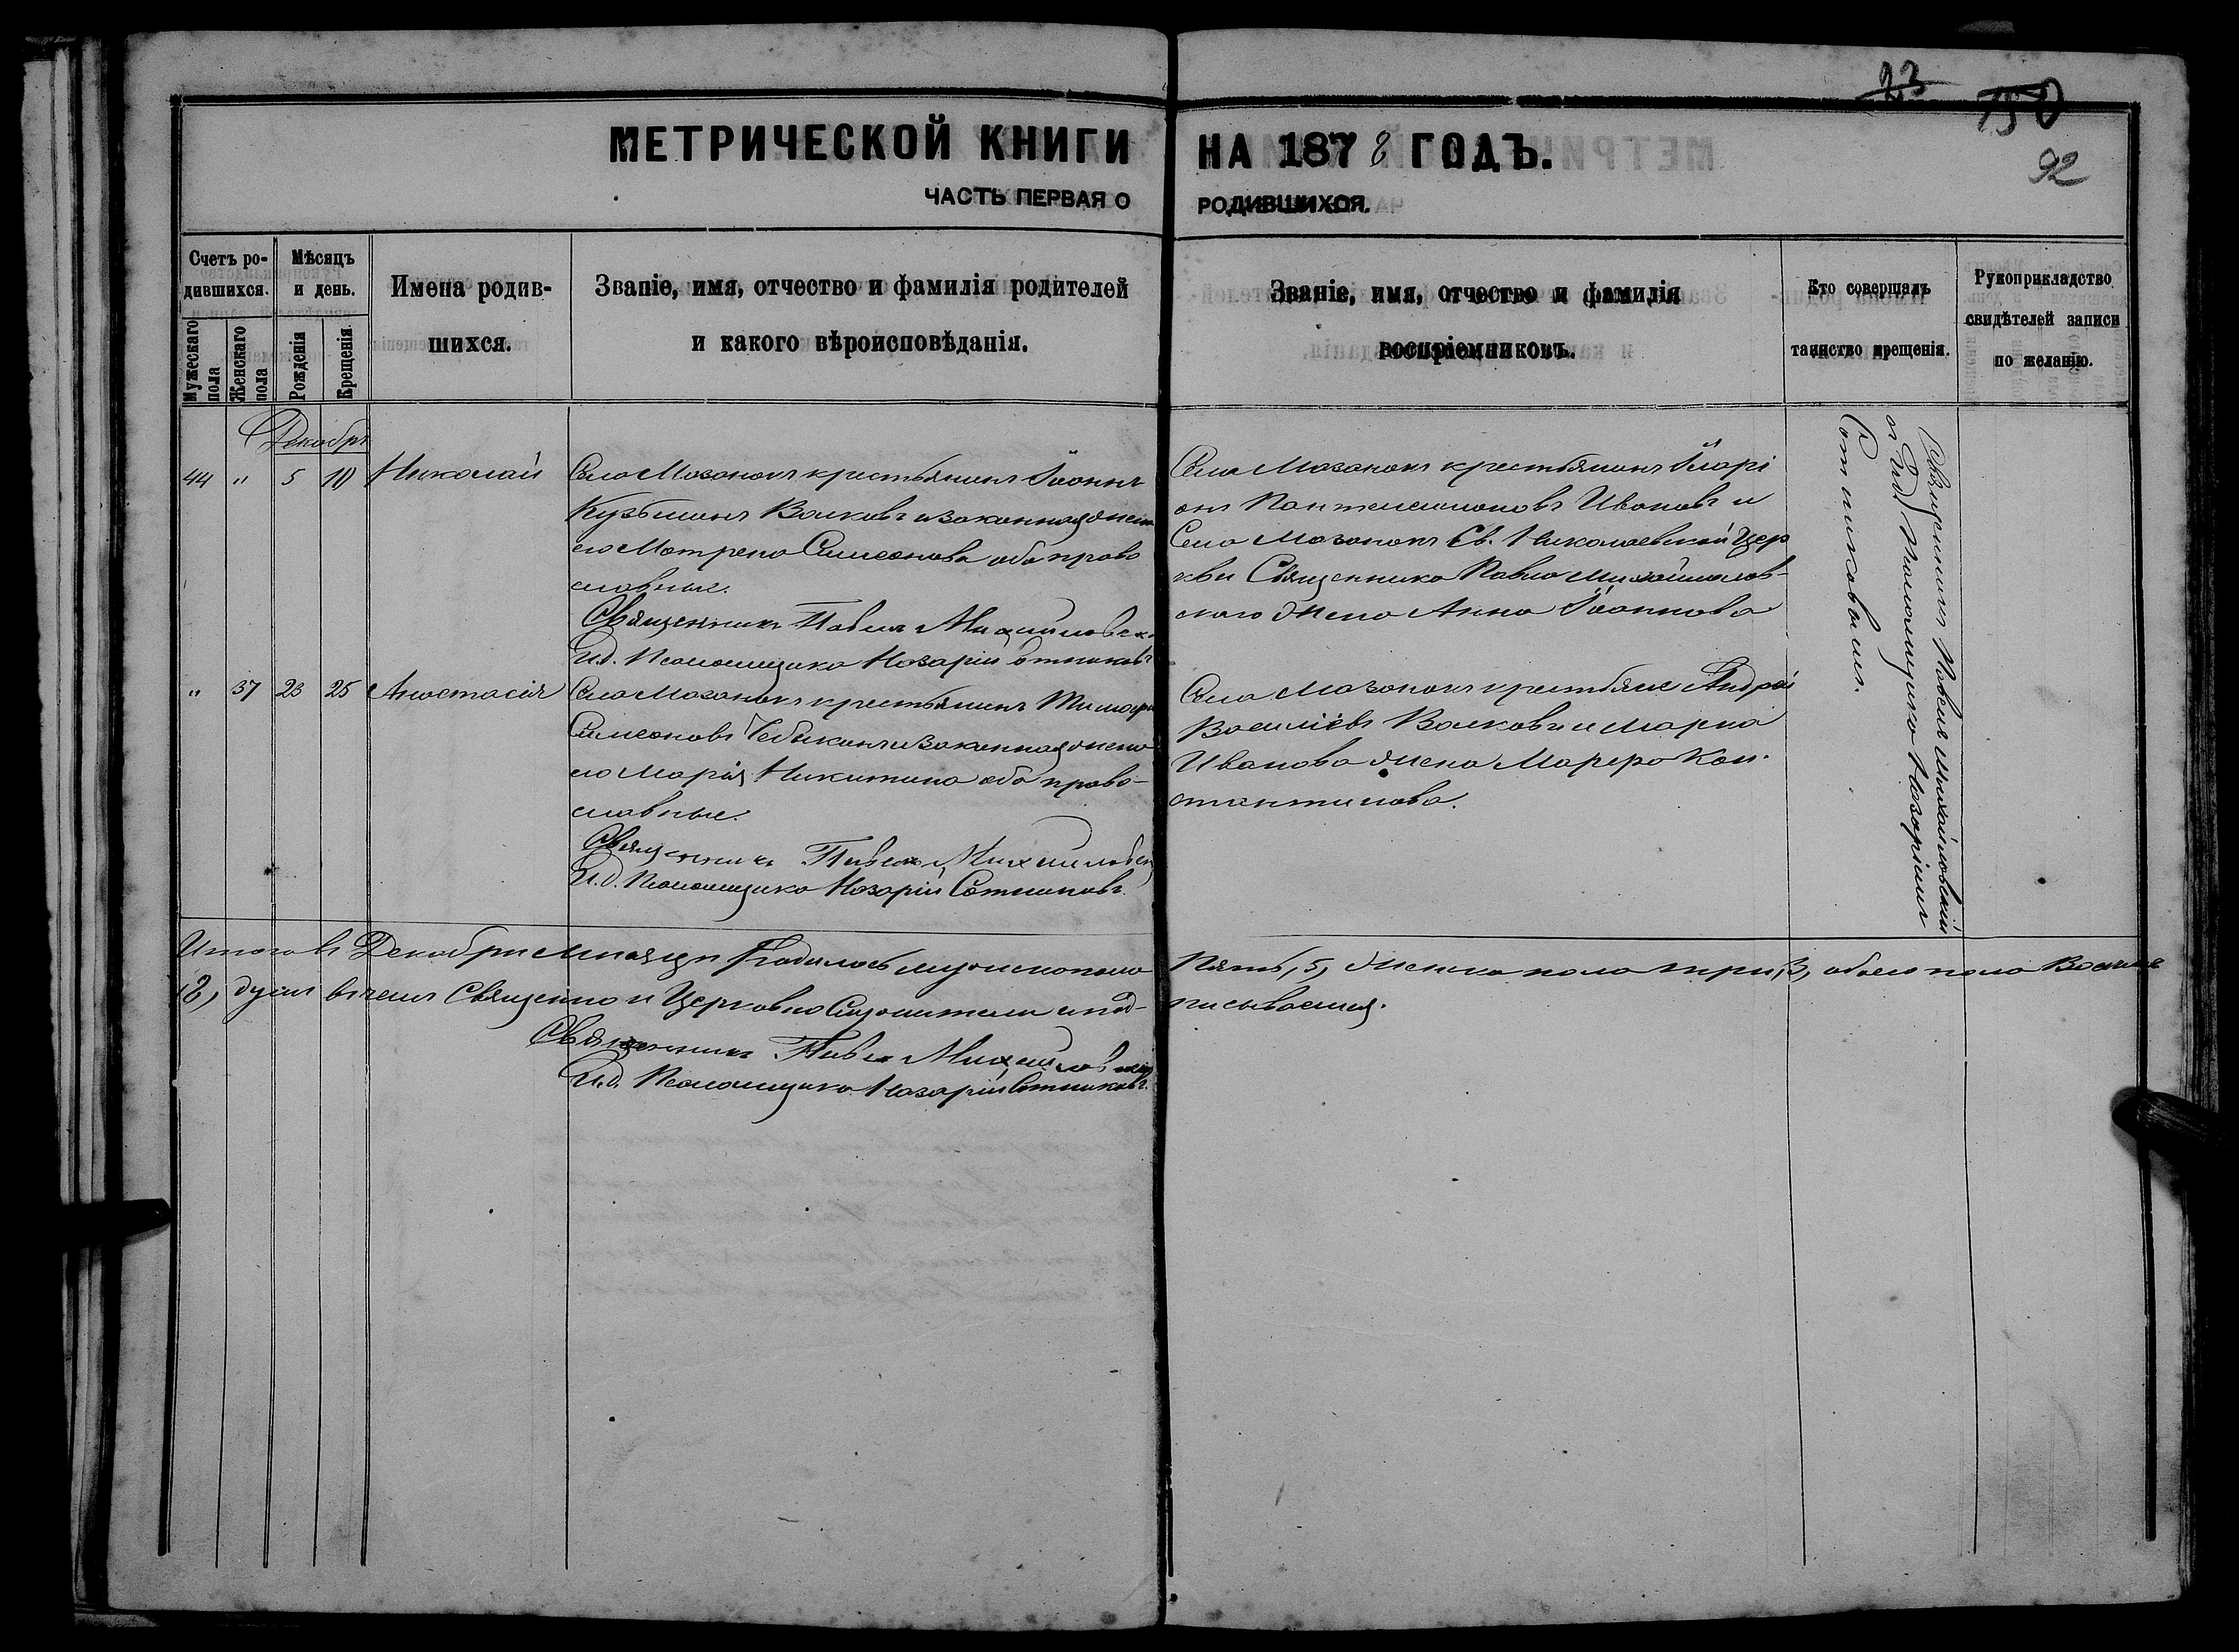 23
150
92
МЕТРИЧЕСКОЙ КНИГИ НА 1878 ГОДЪ.
ЧАСТЬ ПЕРВАЯ О РОДИВШИХСЯ.
Счетъ родившихся.
Мужескаго пола
Женскаго пола
Мѣсяцъ и день.
Рожденія
Крещенія.
Имена родив-
шихся.
Званіе, имя, отчество и фамилія родителей
и какого вѣроисповѣданія.
Званіе, имя, отчество и фамилія
воспріемниковъ.
Кто совершалъ
таинство крещенія.
Рукоприкладство
свидѣтелей записи
по желанію.
Декабрь
44 " 5 10 Николай
Села Мазанокъ крестьянинъ Іоаннъ
Кузьминъ Волковъ и законная жена
его Матрена Симеонова оба право
славные.
Священникъ Павелъ Михайловск
И.д. Псаломщика Назарій Сотниковъ
Села Мазанокъ крестьянинъ Иларі
онъ Пантелеимоновъ Ивановъ и
Села Мазанокъ Св. Николаевской Цер
кви Священника Павла Михайловс-
каго жена Анна Іоаннова
Священникъ Павелъ Михайловскій
съ И.д. Псаломщика Назаріемъ
Сотниковымъ.
" 37 23 25 Анастасія
Села Мазанокъ крестьянинъ Тимофей
Симеоновъ Чебыкинъ и законная жена
его Марія Никитина оба право-
славные.
Священникъ Павелъ Михайловск
И.д. Псаломщика Назарій Сотниковъ.
Села Мазанокъ крестьяне Андрей
Василіевъ Волковъ и Марка
Иванова жена Марфа Кон-
стантинова.
Итого въ Декабрѣ мѣсяцѣ Родилось мужеска пола Пять, 5, Женска пола три, 3, обоего пола Восемь
(8) душъ въ чемъ Священно и Церковно Служители и под- писываемся.
Священникъ Павелъ Михайловскій
И.д. Псаломщика Назарій Сотниковъ.